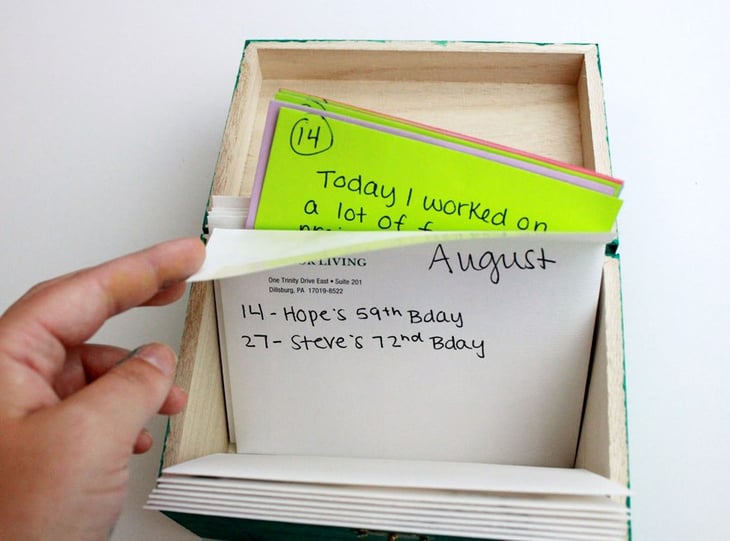 14
Today I worked on
a lot of
LIVING
August
One Trinity Drive East • Suite 201
Dillsburg, PA 17019-8522
14 - Hope's 59th Bday
27 - Steve's 72nd Bday